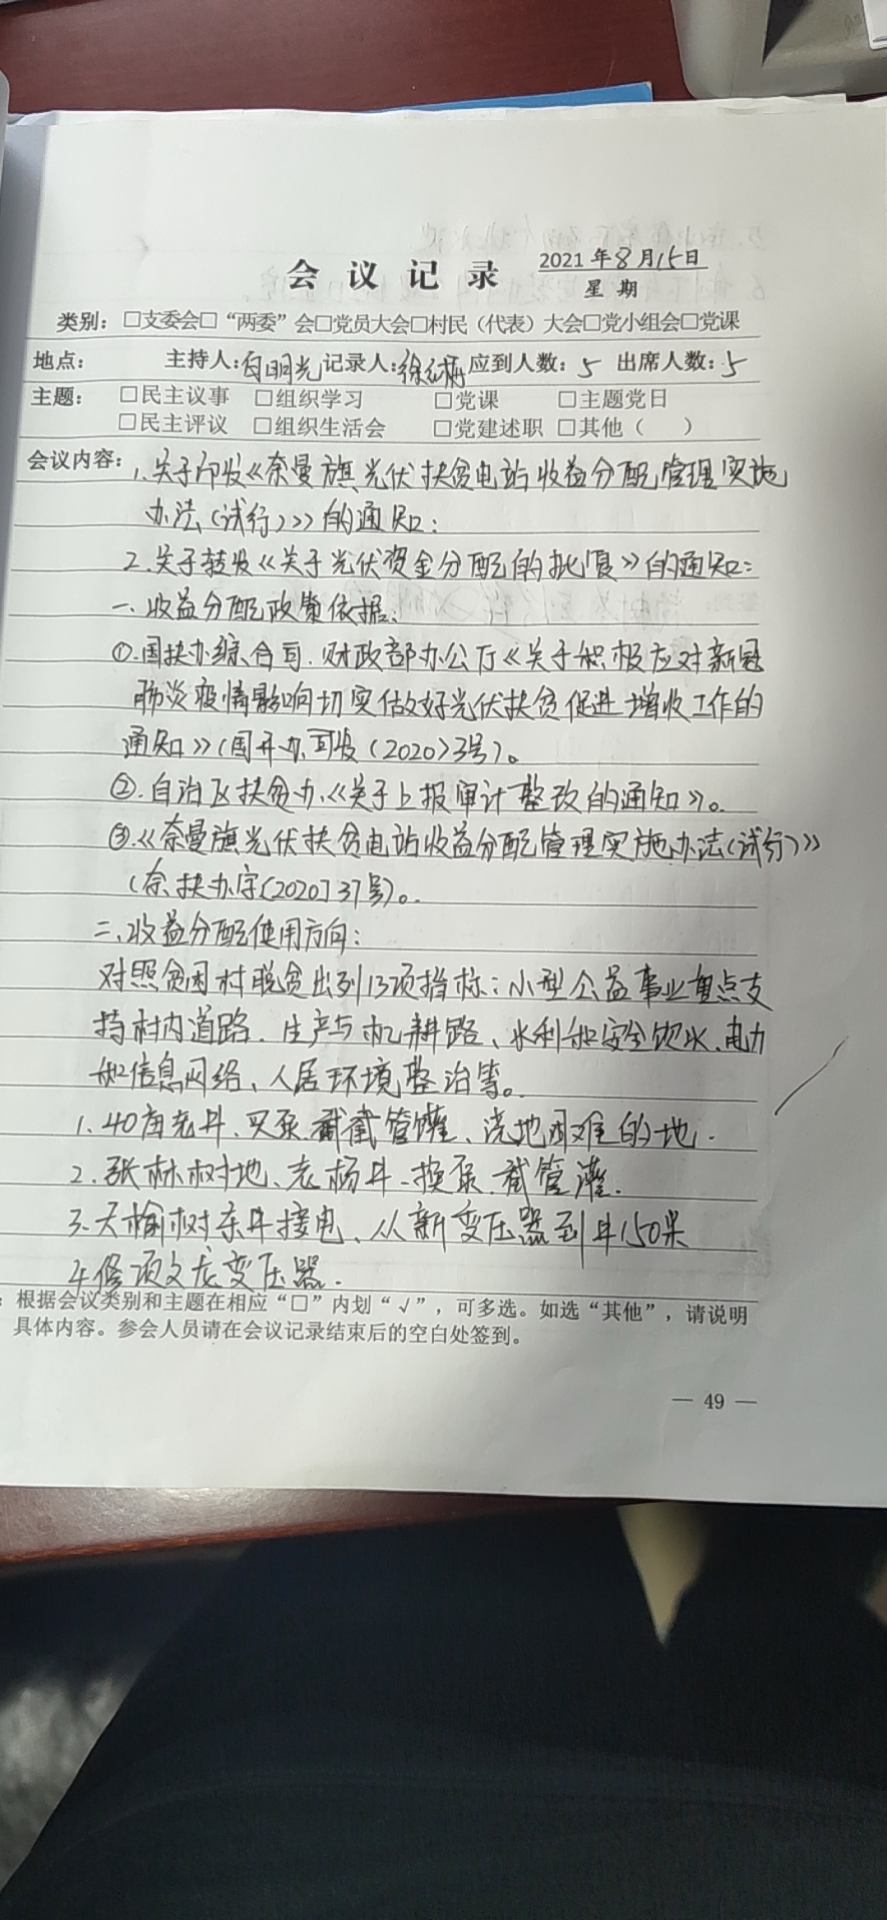 会议记录
2021年8月15日
星期
类别：□支委会□“两委”会□党员大会□村民（代表）大会□党小组会□党课
地点： 主持人：白明光 记录人：徐 应到人数：5 出席人数：5
主题： □民主议事 □组织学习 □党课 □主题党日
□民主评议 □组织生活会 □党建述职 □其他（ ）
会议内容：1.关于印发《奈曼旗光伏扶贫电站收益分配管理实施
办法（试行）》的通知：
2.关于转发《关于光伏资金分配的批复》的通知：
一、收益分配政策依据：
①.国扶办综合司.财政部办公厅《关于积极应对新冠
肺炎疫情影响切实做好光伏扶贫促进增收工作的
通知》（国开办司发（2020）3号）。
②.自治区扶贫办《关于上报审计整改的通知》。
③.《奈曼旗光伏扶贫电站收益分配管理实施办法（试行）》
（奈扶办字[2020]37号）。
二、收益分配使用方向：
对照贫困村脱贫出列13项指标：小型公益事业重点支
持村内道路.生产与机耕路、水利和安全饮水、电力
和信息网络、人居环境整治等。
1.40亩 井、买泵 管灌、浇地困难的地.
2.张林树地、老杨井-换泵. 管灌.
3.大榆树东井接电、从新变压器到井150米
4.修项文龙变压器.
：根据会议类别和主题在相应“□”内划“√”，可多选。如选“其他”，请说明
具体内容。参会人员请在会议记录结束后的空白处签到。
— 49 —